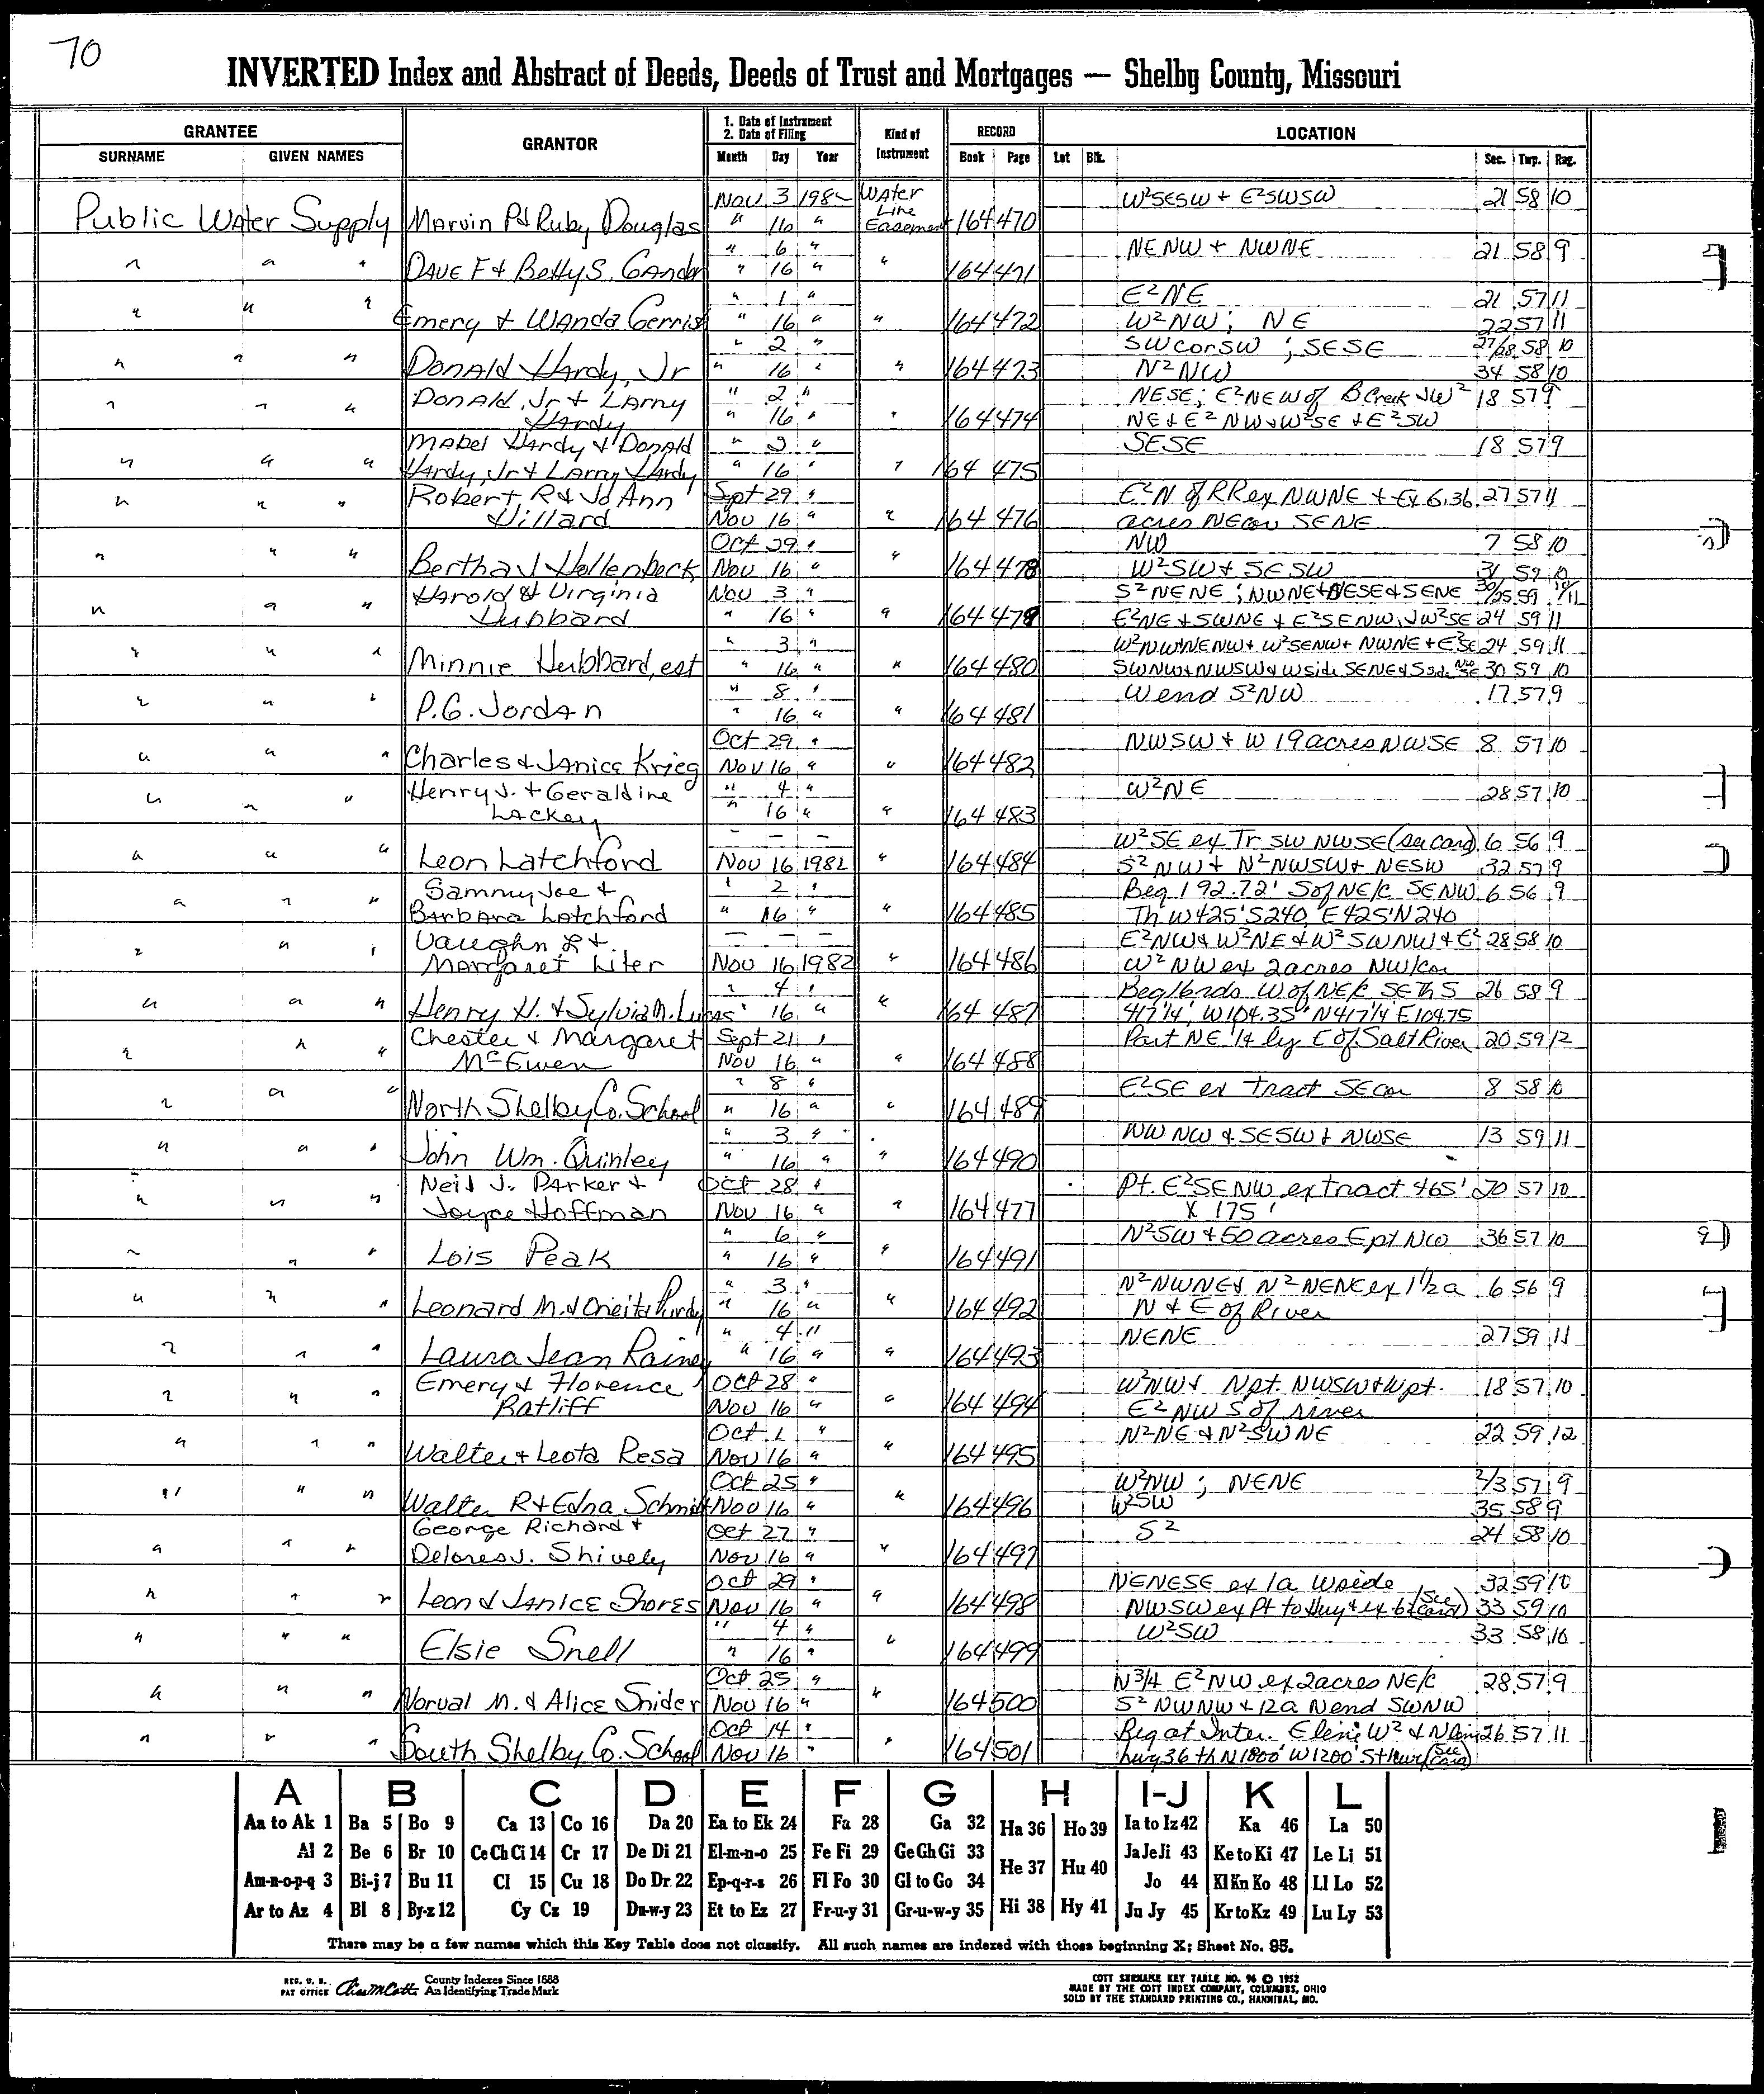 70
INVERTED Index and Abstract of Deeds, Deeds of Trust and Mortgages — Shelby County, Missouri
GRANTEE GRANTOR 1. Date of Instrument 2. Date of Filing Kind of Instrument RECORD LOCATION
SURNAME GIVEN NAMES Month Day Year Book Page Lot Blk. Sec. Twp. Rag.
Nov 3 1982 Water Line Easement W²SESW + E²SWSW 21 58 10
Public Water Supply Marvin P & Ruby Douglas " 16 " 164 470
" 6 " NENW + NWNE 21 58 9
" " " Dave F & Betty S. Gander " 16 " " 164 471
" 1 " E²NE 21 57 11
" " " Emery & Wanda Gerrish " 16 " " 164 472 W²NW; NE 22 57 11
" 2 " SWcorSW ; SESE 27/28 58 10
" " " Donald Hardy, Jr " 16 " " 164 473 N²NW 34 58 10
Donald, Jr & Larry " 2 " NESE; E²NEW of B Creek 18 57 9
" " " Hardy " 16 " " 164 474 NE & E² NW & W²SE & E²SW
Mabel Hardy & Donald " 2 " SESE 18 57 9
" " " Hardy, Jr & Larry Hardy " 16 " " 164 475
Robert R & Jo Ann Sept 29 " E²N of RR ex NWNE + Ex 6.36 27 57 11
" " " Dillard Nov 16 " " 164 476 acres NEcor SENE
Oct 29 " NW 7 58 10
" " " Bertha J Hollenbeck Nov 16 " " 164 478 W²SW & SESW 31 59 10
Harold & Virginia Nov 3 " S²NENE ; NWNE & NESE & SENE 30/25 59 10/11
" " " Hubbard " 16 " " 164 479 E²NE & SWNE & E²SENW, W²SE 24 59 11
" 3 " W²NWNENW + W²SENW + NWNE + E²SE 24 59 11
" " " Minnie Hubbard, est " 16 " " 164 480 SWNW & NWSW & Wside SENE & Sside NWSE 30 59 10
" 8 " W end S²NW 17 57 9
" " " P.G. Jordan " 16 " " 164 481
Oct 29 " NWSW + W 19 acres NWSE 8 57 10
" " " Charles & Janice Krieg Nov 16 " " 164 482
Henry J. + Geraldine " 4 " W²NE 28 57 10
" " " Lackey " 16 " " 164 483
– – – W²SE ex Tr SW NWSE (see card) 6 56 9
" " " Leon Latchford Nov 16 1982 " 164 484 S²NW + N²NWSW + NESW 32 57 9
Sammy Joe + " 2 " Beg 192.72' S of NE/c SENW 6 56 9
" " " Barbara Latchford " 16 " " 164 485 Th W425' S240, E425' N240
Vaughn L + – – – E²NW & W²NE & W² SWNW & E² 28 58 10
" " " Margaret Liter Nov 16 1982 " 164 486 W² NW ex 2 acres NW/cor
" 4 " Beg 16rds W of NE/c SE Th S 26 58 9
" " " Henry H. & Sylvia M. Lucas " 16 " " 164 487 417¼', W104.35' N417¼ E10475
Chester & Margaret Sept 21 " Part NE¼ ly E of Salt River 20 59 12
" " " McEwen Nov 16 " " 164 488
" 8 " E²SE ex Tract SEcor 8 58 10
" " " North Shelby Co. School " 16 " " 164 489
" 3 " NWNW & SESW & NWSE 13 59 11
" " " John Wm. Quinley " 16 " " 164 490
Neil J. Parker & Oct 28 " Pt. E²SENW ex tract 465' 20 57 10
" " " Joyce Hoffman Nov 16 " " 164 477 X 175'
" 6 " N²SW + 50 acres E pt NW 36 57 10
" " " Lois Peak " 16 " " 164 491
" 3 " N²NWNE & N²NENE ex 1½ a 6 56 9
" " " Leonard M. & Oneita Purdy " 16 " " 164 492 N & E of River
" 4 " NENE 27 59 11
" " " Laura Jean Rainey " 16 " " 164 493
Emery & Florence Oct 28 " W²NW & Npt. NWSW & Wpt. 18 57 10
" " " Ratliff Nov 16 " " 164 494 E²NW S of river
Oct 1 " N²NE & N²SWNE 22 59 12
" " " Walter & Leota Resa Nov 16 " " 164 495
Oct 25 " W²NW ; NENE 2/3 57 9
" " " Walter R & Edna Schmidt Nov 16 " " 164 496 W²SW 35 58 9
George Richard & Oct 27 " S² 24 58 10
" " " Delores J. Shively Nov 16 " " 164 497
Oct 29 " NENESE ex 1a Wside 32 59 10
" " " Leon & Janice Shores Nov 16 " " 164 498 NWSW ex Pt to Hwy & ex (See card) 33 59 10
" 4 " W²SW 33 58 10
" " " Elsie Snell " 16 " " 164 499
Oct 25 " N¾ E²NW ex 2acres NE/c 28 57 9
" " " Norval M. & Alice Snider Nov 16 " " 164 500 S² NWNW & 12a N end SWNW
Oct 14 " Beg at Inter. E line W² & N line 26 57 11
" " " South Shelby Co. School Nov 16 " " 164 501 hwy 36 th N1800' W1200' S (See card)
A B C D E F G H I-J K L
Aa to Ak 1 Ba 5 Bo 9 Ca 13 Co 16 Da 20 Ea to Ek 24 Fa 28 Ga 32 Ha 36 Ho 39 Ia to Iz 42 Ka 46 La 50
Al 2 Be 6 Br 10 Ce Ch Ci 14 Cr 17 De Di 21 El-m-n-o 25 Fe Fi 29 Ge Gh Gi 33 He 37 Hu 40 Ja Je Ji 43 Ke to Ki 47 Le Li 51
Am-n-o-p-q 3 Bi-j 7 Bu 11 Cl 15 Cu 18 Do Dr 22 Ep-q-r-s 26 Fl Fo 30 Gl to Go 34 Jo 44 Kl Kn Ko 48 Ll Lo 52
Ar to Az 4 Bl 8 By-z 12 Cy Cz 19 Du-w-y 23 Et to Ez 27 Fr-u-y 31 Gr-u-w-y 35 Hi 38 Hy 41 Ju Jy 45 Kr to Kz 49 Lu Ly 53
There may be a few names which this Key Table does not classify. All such names are indexed with those beginning X; Sheet No. 95.
REG. U. S. PAT OFFICE County Indexes Since 1888 An Identifying Trade Mark
COTT SURNAME KEY TABLE NO. 96 © 1952
MADE BY THE COTT INDEX COMPANY, COLUMBUS, OHIO
SOLD BY THE STANDARD PRINTING CO., HANNIBAL, MO.